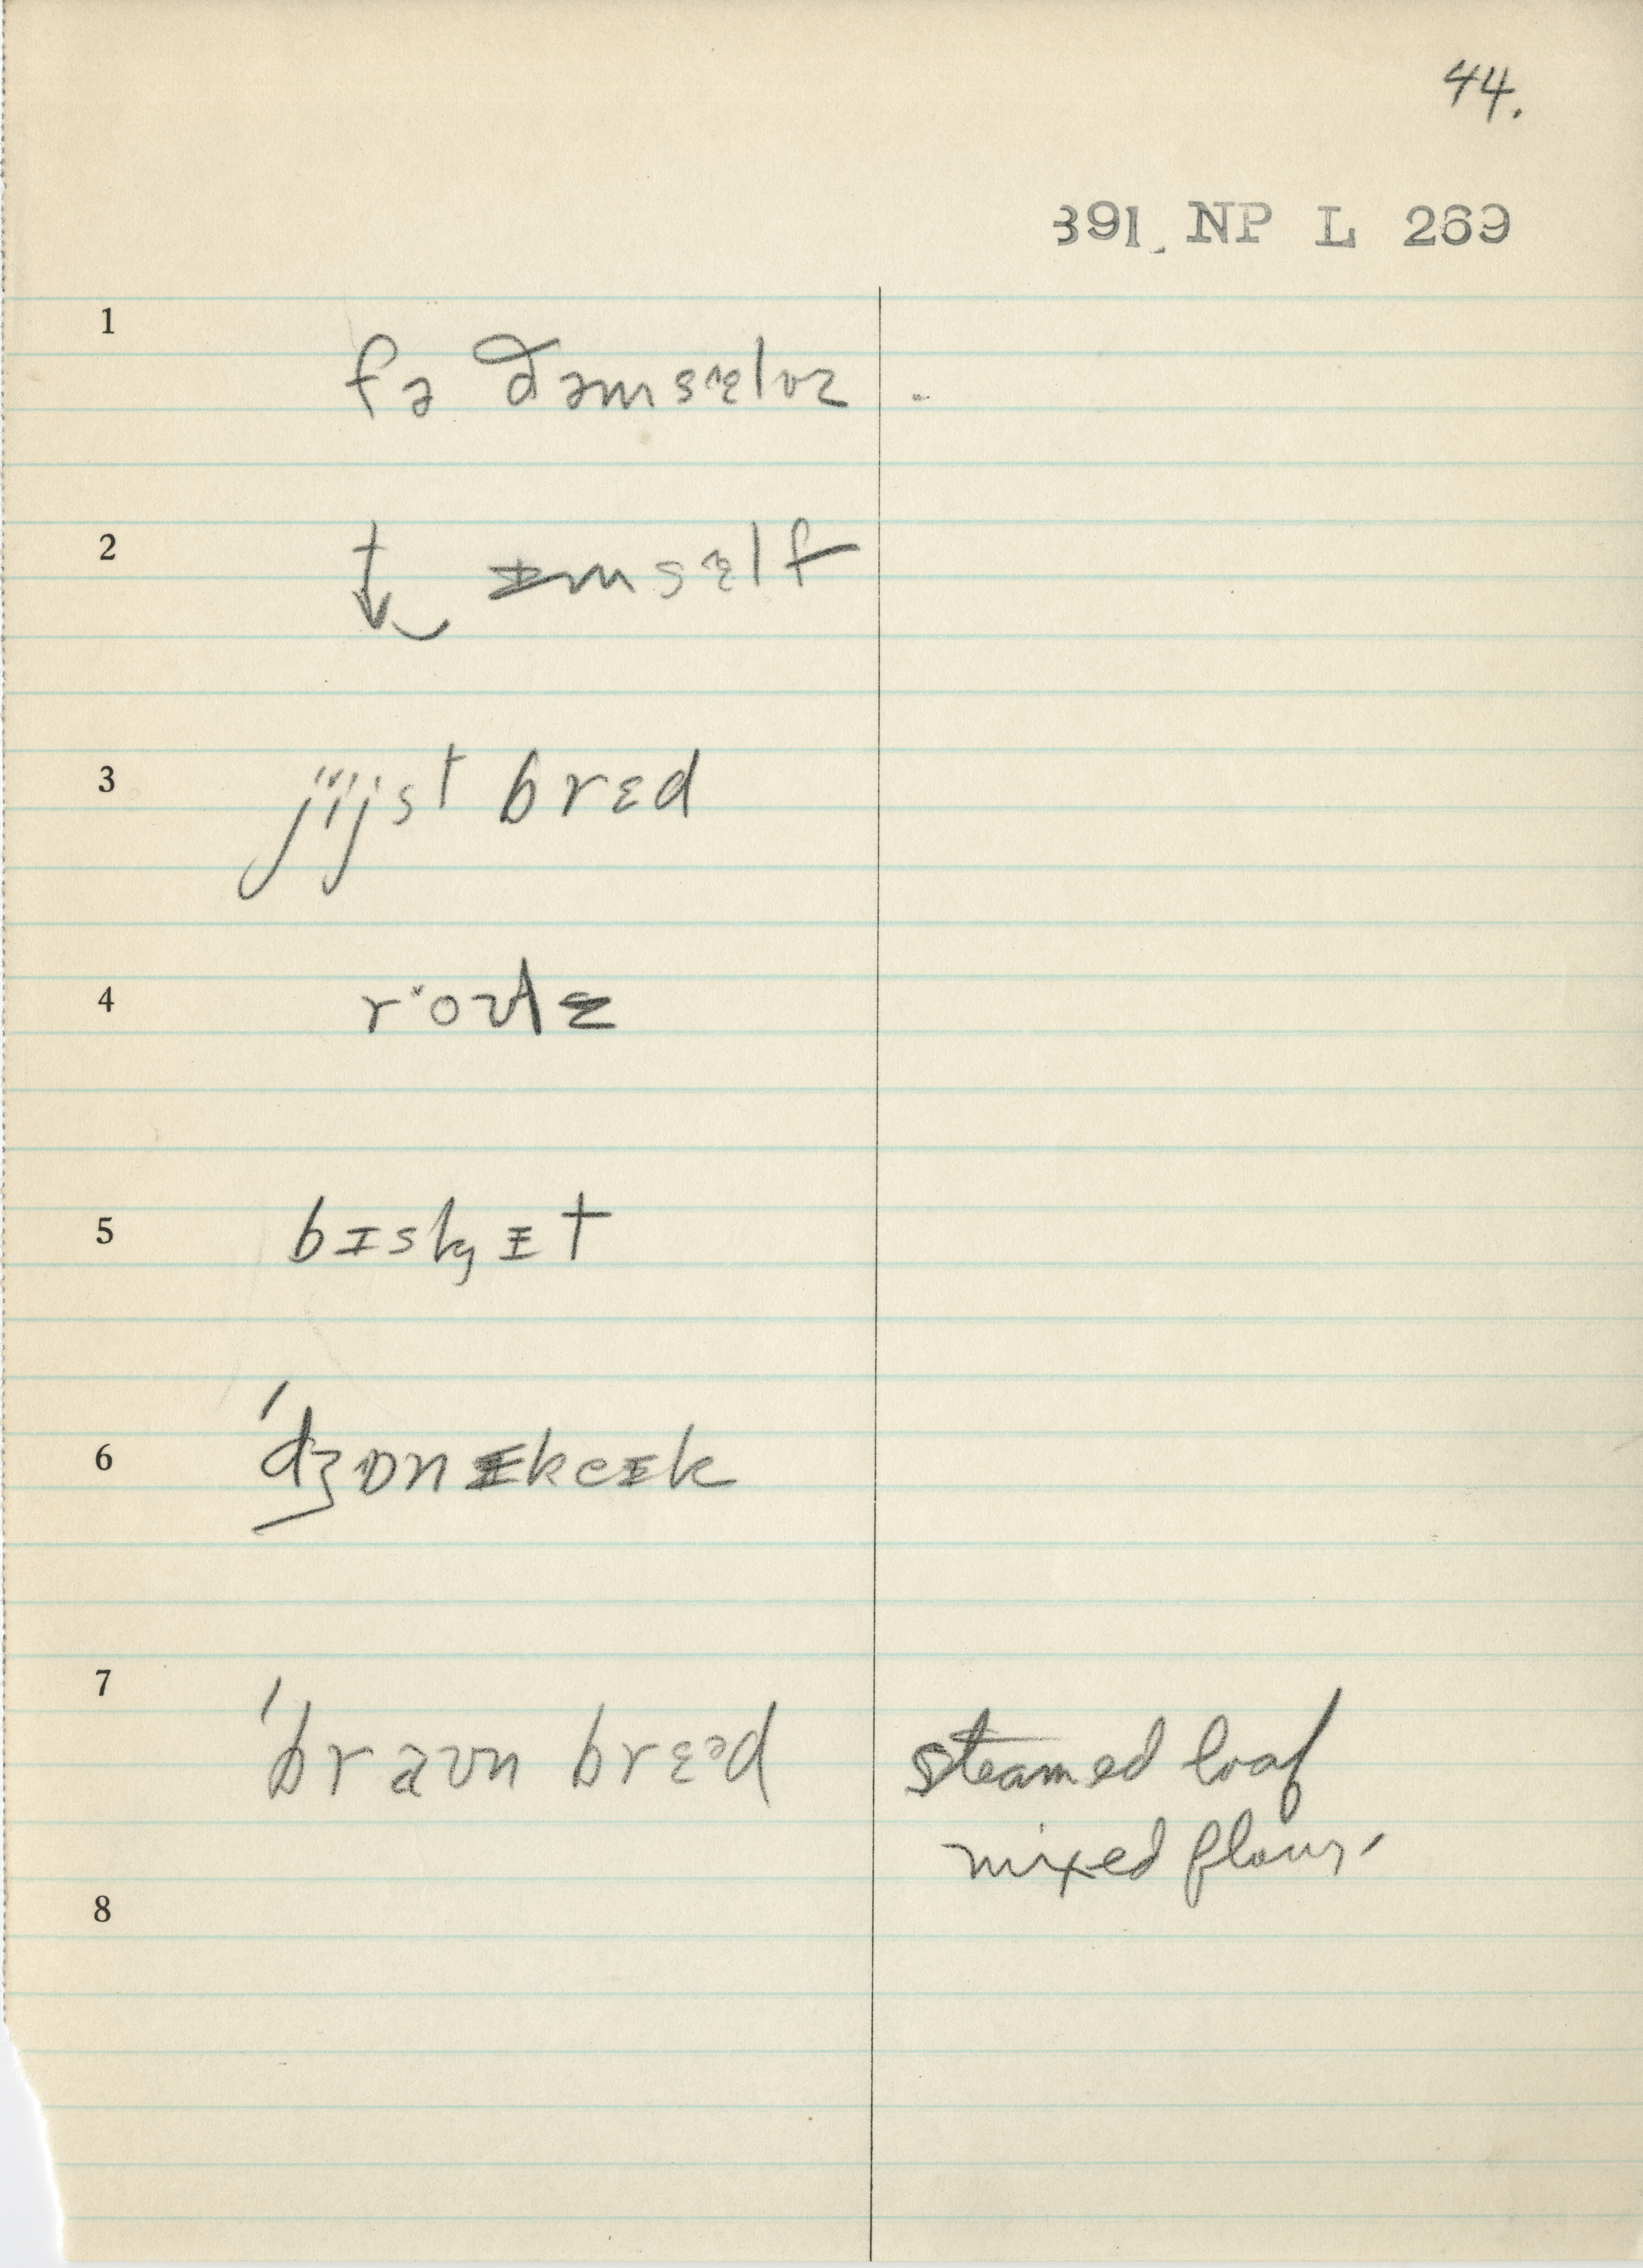 44.
391. NP L 269
1 fə ðəmsɛlvz .
2 ↓ ɪmsɛlf
3 jijst brɛd
4
5 bɪskɪt
6 'dʒɒnɪkeɪk
7 'braʊn brɛᵊd steamed loaf
mixed flour.
8